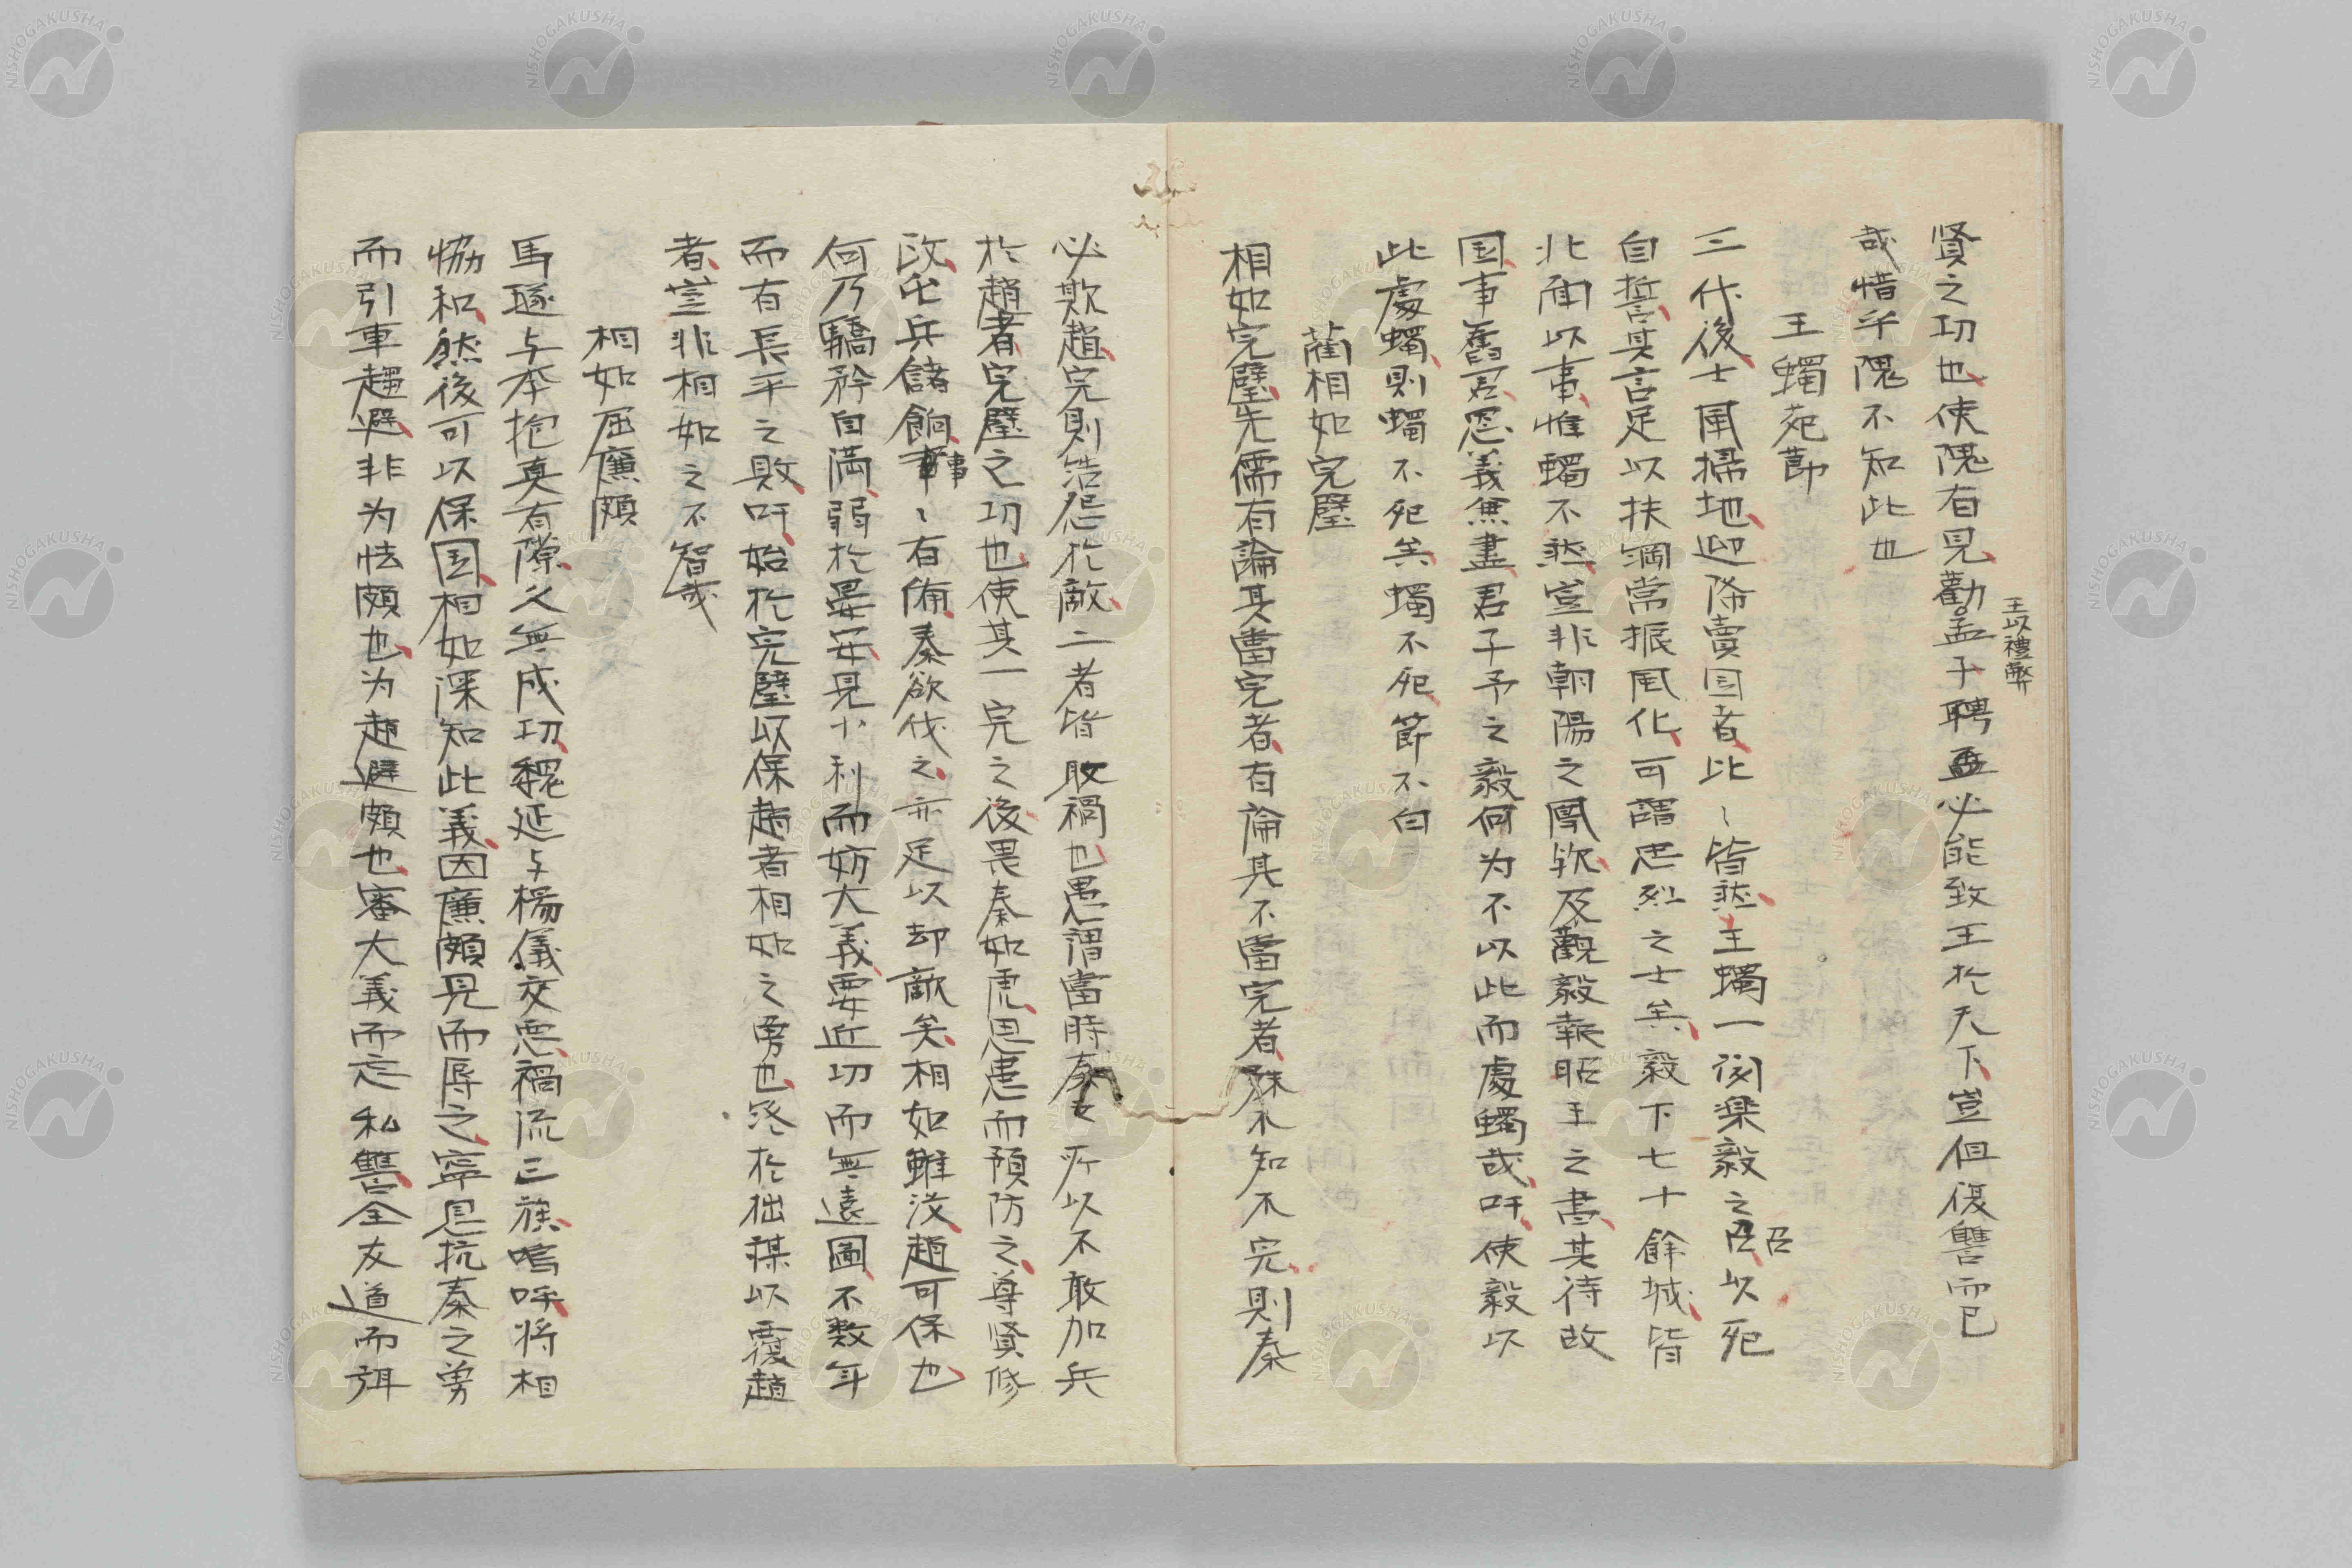 賢之功也使隗有見勸
王以禮幣
孟子聘孟必能致王於天下豈但復讐而已
哉惜乎隗不知此也
王蠋死節
三代後士風掃地迎降賣国者比〻皆然王蠋一
樂毅之召以死
自誓其言足以扶綱常振風化可謂忠烈之士矣毅下七十餘城皆
北面以事惟蠋不然豈非朝陽之鳳欤及觀毅報昭王之書其待故
国事舊君恩義無盡君子予之毅何为不以此而處蠋哉吁使毅以
此處蠋則蠋不死矣蠋不死節不白
藺相如完璧
相如完璧先儒有論其當完者有論其不當完者殊不知不完則秦
必欺趙完則結怨於敵二者皆取禍也愚謂當時秦之所以不敢加兵
於趙者完璧之功也使其一完之後畏秦如虎思患而預防之尊賢修
政屯兵儲餉事〻有備秦欲伐之亦足以却敵矣相如雖没趙可保也
何乃驕矜自満弱於晏安見小利而妨大義要近功而無遠圖不数年
而有長平之敗吁始於完璧以保趙者相如之勇也终於拙謀以覆趙
者豈非相如之不智哉
相如屈廉頗
馬璲与李抱真有隙久無成功魏延与楊儀交悪禍流三族嗚呼将相
恊和然後可以保国相如深知此義因廉頗見而辱之寧忍抗秦之勇
而引車趨避非为怯頗也为趙避頗也審大義而忘私讐全友道而弭